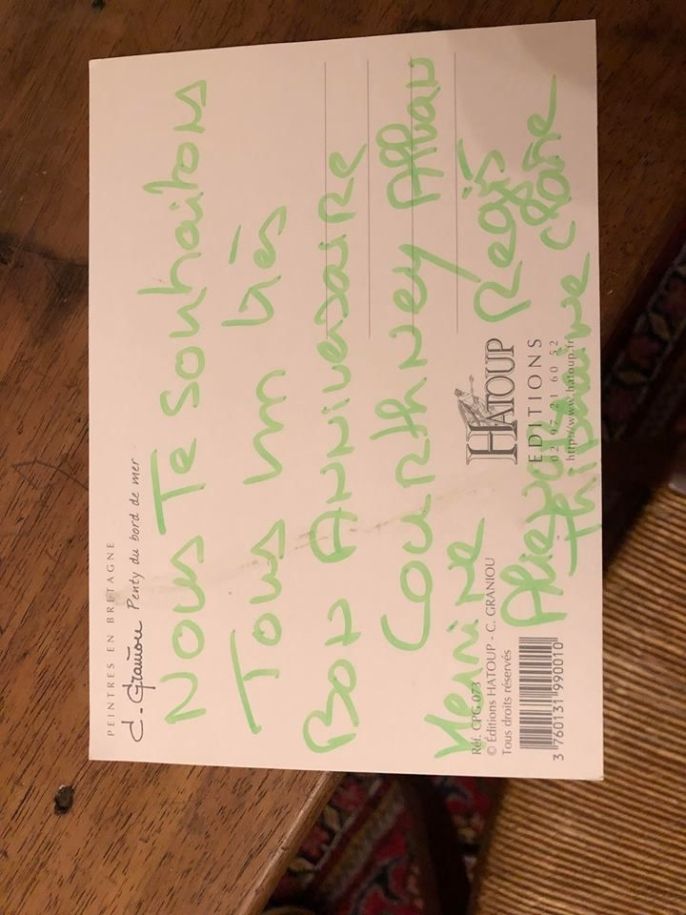 PEINTRES EN BRETAGNE
C. Graniou Penty du bord de mer
NOUS Te SOUhaitONS
TOUS un tRès
BON ANNiVeRSaiRe
COURthNey Alban
HeRmiNe Regis
thiphaiNe ClaiRe
HATOUP
EDITIONS
02 97 21 60 52
http://www.hatoup.fr
Réf. CPG 073
© Éditions HATOUP - C. GRANIOU
Tous droits réservés
3 760131 990010